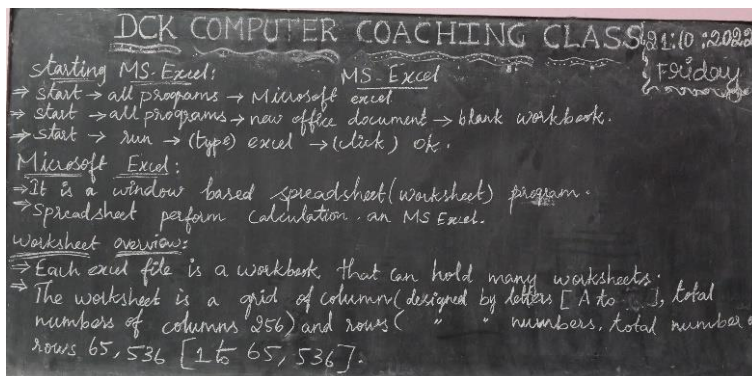 DCK COMPUTER COACHING CLASS 21:10:2022
Friday
MS. Excel
Starting MS. Excel:
⇒ Start → all programs → Microsoft excel
⇒ Start → all programs → new office document → blank workbook.
⇒ Start → run → (type) excel → (click) ok.
Microsoft Excel:
⇒ It is a window based spreadsheet (worksheet) program.
⇒ Spreadsheet perform calculation. an MS Excel.
Worksheet overview:
⇒ Each excel file is a workbook, that can hold many worksheets.
⇒ The worksheet is a grid of column (designed by letters [A to ], total
numbers of columns 256) and rows ( " " numbers, total number
rows 65,536 [1 to 65,536].